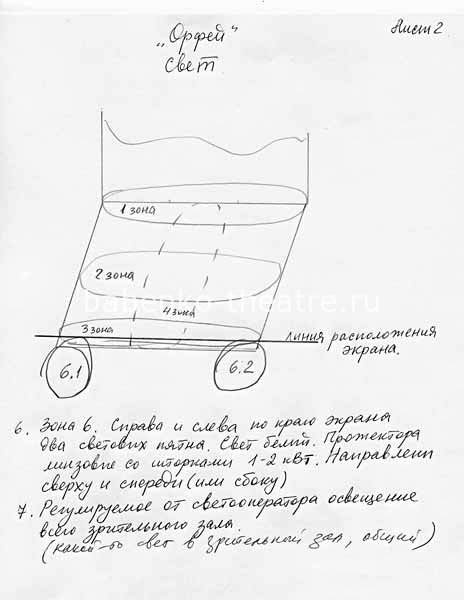 Лист 2
"Орфей"
Свет
1 зона
2 зона
babenko-theatre.ru
4 зона
3 зона
линия расположения
экрана.
6.1
6.2
6. Зона 6. Справа и слева по краю экрана
два световых пятна. Свет белый. Прожектора
линзовые со шторками 1-2 кВт. Направлены
сверху и спереди (или сбоку)
7. Регулируемое от светооператора освещение
всего зрительного зала.
(какой-то свет в зрительный зал, общий)